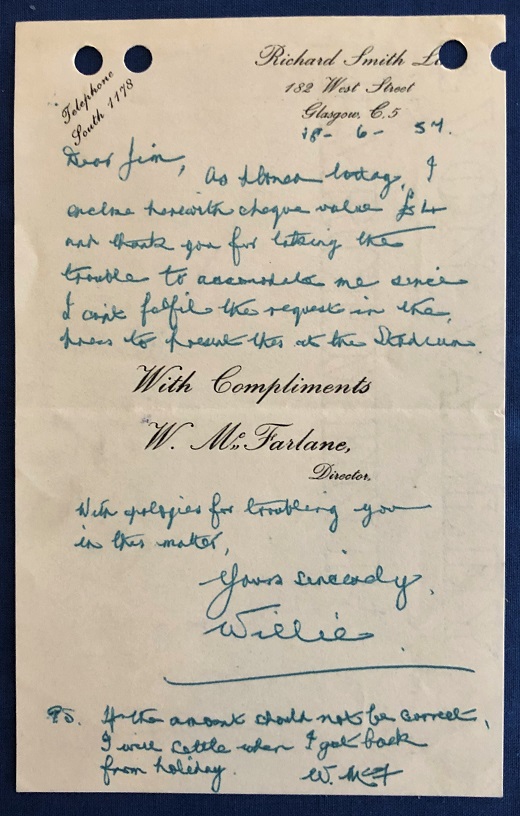 Telephone
South 1178
Richard Smith
182 West Street
Glasgow, C.5
18- 6- 57.
Dear Jim,
As phoned today, I
enclose herewith cheque value £4
and thank you for taking the
trouble to accomodate me since
I can't fulfil the request in the
press to present this at the Stadium
With Compliments
W. McFarlane,
Director.
With apologies for troubling you
in this matter,
Yours sincerely,
Willie
P.S. If the amount should not be correct,
I will settle when I get back
from holiday. W. McF